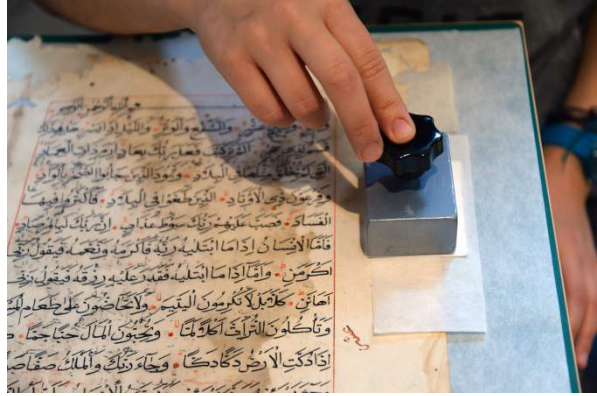 وَالشَّفْعِ وَالْوَتْرِ وَالَّيْلِ اِذَا يَسْرِ هَلْ فِي ذٰلِكَ
فَعَلَ رَبُّكَ بِعَادٍ اِرَمَ ذَاتِ الْعِمَادِ
الَّتِي لَمْ يُخْلَقْ مِثْلُهَا فِي الْبِلَادِ وَثَمُودَ الَّذِينَ جَابُوا الصَّخْرَ بِالْوَادِ
وَفِرْعَوْنَ ذِي الْاَوْتَادِ الَّذِينَ طَغَوْا فِي الْبِلَادِ فَاَكْثَرُوا فِيهَا
الْفَسَادَ فَصَبَّ عَلَيْهِمْ رَبُّكَ سَوْطَ عَذَابٍ اِنَّ رَبَّكَ لَبِالْمِرْصَادِ
فَاَمَّا الْاِنْسَانُ اِذَا مَا ابْتَلٰيهُ رَبُّهُ فَاَكْرَمَهُ وَنَعَّمَهُ فَيَقُولُ رَبِّي
اَكْرَمَنِ وَاَمَّا اِذَا مَا ابْتَلٰيهُ فَقَدَرَ عَلَيْهِ رِزْقَهُ فَيَقُولُ رَبِّي
اَهَانَنِ كَلَّا بَلْ لَا تُكْرِمُونَ الْيَتِيمَ وَلَا تَحَاضُّونَ عَلٰى طَعَامِ
وَتَأْكُلُونَ التُّرَاثَ اَكْلًا لَمًّا وَتُحِبُّونَ الْمَالَ حُبًّا جَمًّا
اِذَا دُكَّتِ الْاَرْضُ دَكًّا دَكًّا وَجَاءَ رَبُّكَ وَالْمَلَكُ صَفًّا صَفًّا